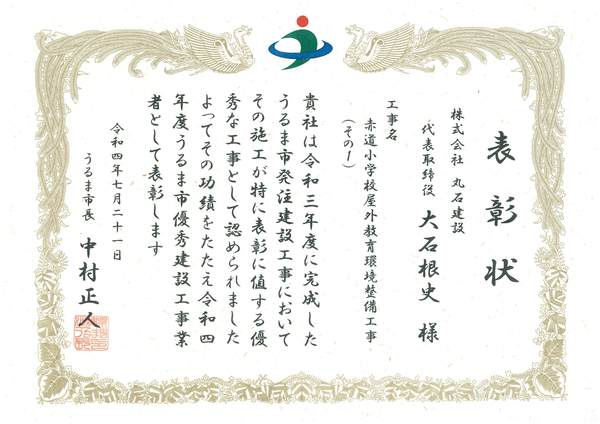 表彰状
株式会社 丸石建設
代表取締役 大石根史 様
工事名
赤道小学校屋外教育環境整備工事
(その1)
貴社は令和三年度に完成した
うるま市発注建設工事において
その施工が特に表彰に値する優
秀な工事として認められました
よってその功績をたたえ令和四
年度うるま市優秀建設工事業
者として表彰します
令和四年七月二十一日
うるま市長 中村正人